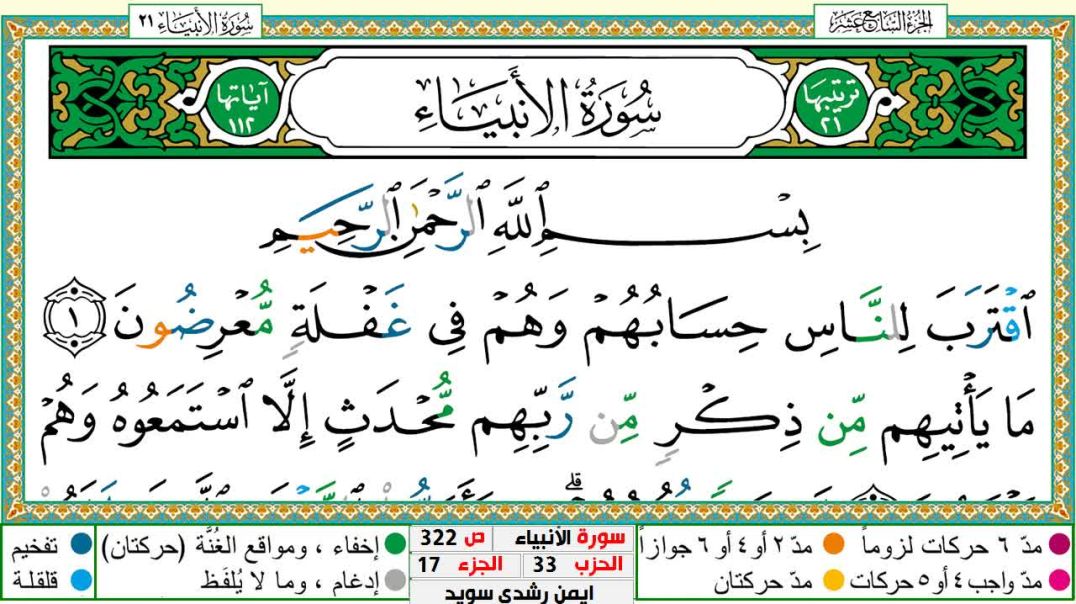 الجزء السابع عشر
سُورَةُ الأَنبِيَاء ٢١
ترتيبها ٢١
سُورَةُ الأَنبِيَاءِ
آياتها ١١٢
بِسْمِ ٱللَّهِ ٱلرَّحْمَٰنِ ٱلرَّحِيمِ
ٱقْتَرَبَ لِلنَّاسِ حِسَابُهُمْ وَهُمْ فِى غَفْلَةٍ مُّعْرِضُونَ ١
مَا يَأْتِيهِم مِّن ذِكْرٍ مِّن رَّبِّهِم مُّحْدَثٍ إِلَّا ٱسْتَمَعُوهُ وَهُمْ
مدّ ٦ حركات لزوماً
مدّ ٢ أو ٤ أو ٦ جوازاً
مدّ واجب ٤ أو ٥ حركات
مدّ حركتان
سورة الأنبياء ص 322
الحزب 33 الجزء 17
ايمن رشدى سويد
إخفاء ، ومواقع الغُنَّة (حركتان)
إدغام ، وما لا يُلفَظ
تفخيم
قلقلة